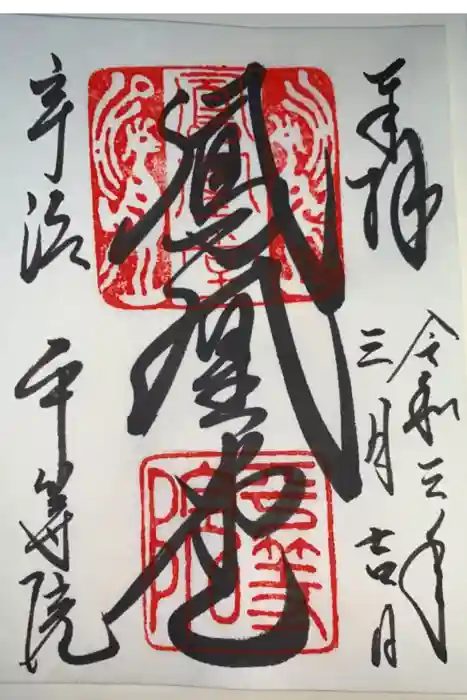 奉拝
令和三年
三月吉日
鳳凰堂
宇治
平等院